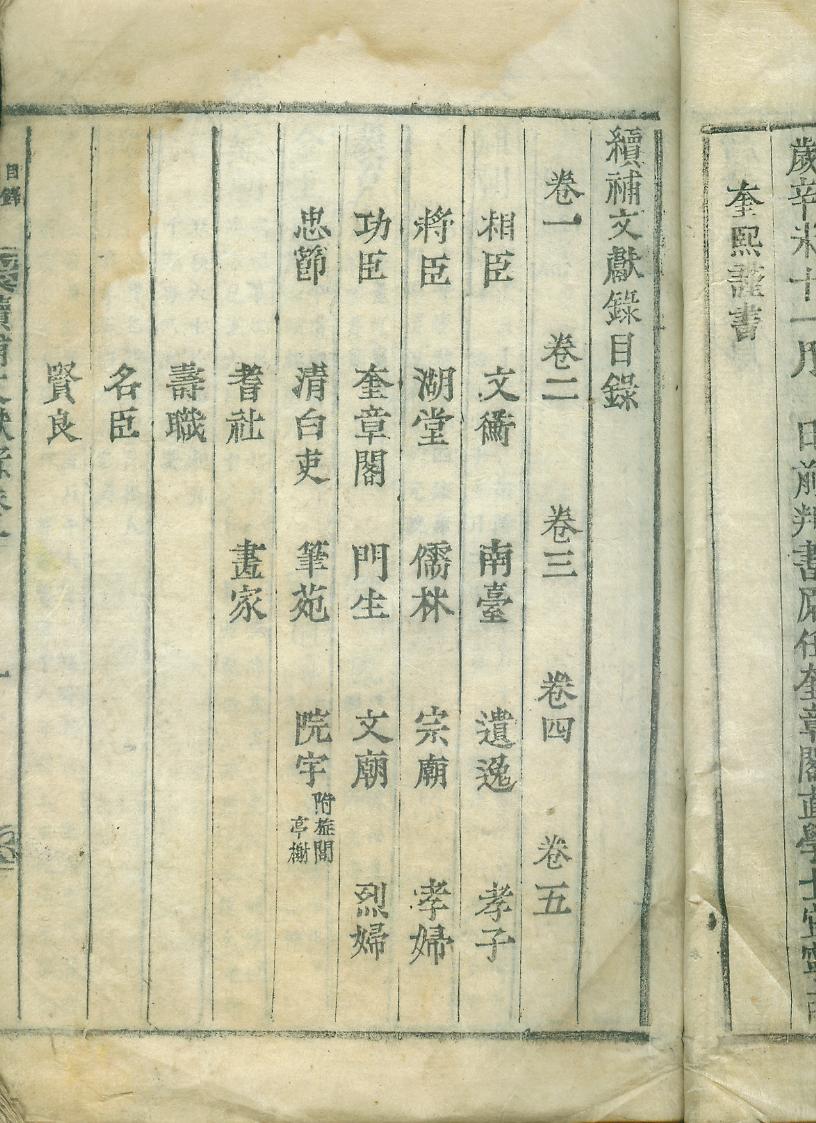 歲辛未十一月 日前判書原任奎章閣直學士宜寧
奎熙謹書
續補文獻錄目錄
卷一 卷二 卷三 卷四 卷五
相臣 文衡 南臺 遺逸 孝子
將臣 湖堂 儒林 宗廟 孝婦
功臣 奎章閣 門生 文廟 烈婦
忠節 清白吏 筆苑 院宇 附旌閭亭榭
耆社 畫家
壽職
名臣
賢良
目錄